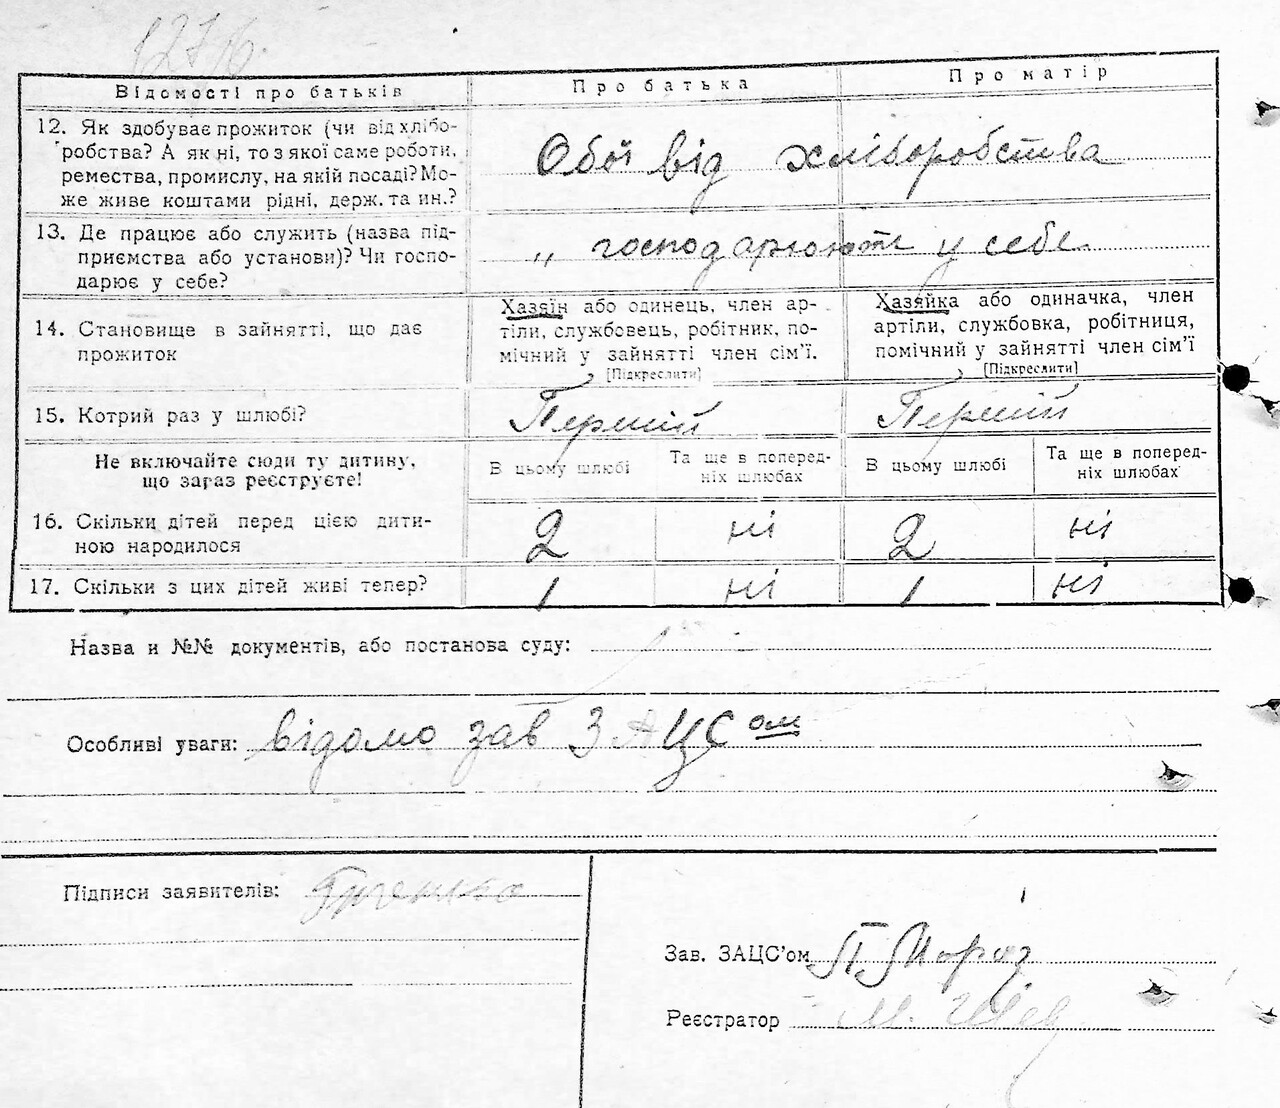 Відомості про батьків
Про батька
Про матір
12. Як здобуває прожиток (чи від хлібо-
робства? А як ні, то з якої саме роботи,
ремества, промислу, на якій посаді? Мо-
же живе коштами рідні, держ. та ин.?
Обої від хліборобства
13. Де працює або служить (назва під-
приємства або установи)? Чи госпо-
дарює у себе?
„ господарюють у себе
14. Становище в зайнятті, що дає
прожиток
Хазяїн або одинець, член ар-
тіли, службовець, робітник, по-
мічний у зайнятті член сім'ї.
[Підкреслити]
Хазяйка або одиначка, член
артіли, службовка, робітниця,
помічний у зайнятті член сім'ї
[Підкреслити]
15. Котрий раз у шлюбі?
Перший
Перший
Не включайте сюди ту дитину,
що зараз реєструєте!
В цьому шлюбі
Та ще в поперед-
ніх шлюбах
В цьому шлюбі
Та ще в поперед-
ніх шлюбах
16. Скільки дітей перед цією дити-
ною народилося
2
ні
2
ні
17. Скільки з цих дітей живі тепер?
1
ні
1
ні
Назва и №№ документів, або постанова суду:
Особливі уваги: відомо зав ЗАЦСом
Підписи заявителів:
Зав. ЗАЦС'ом П Мороз
Реєстратор М.